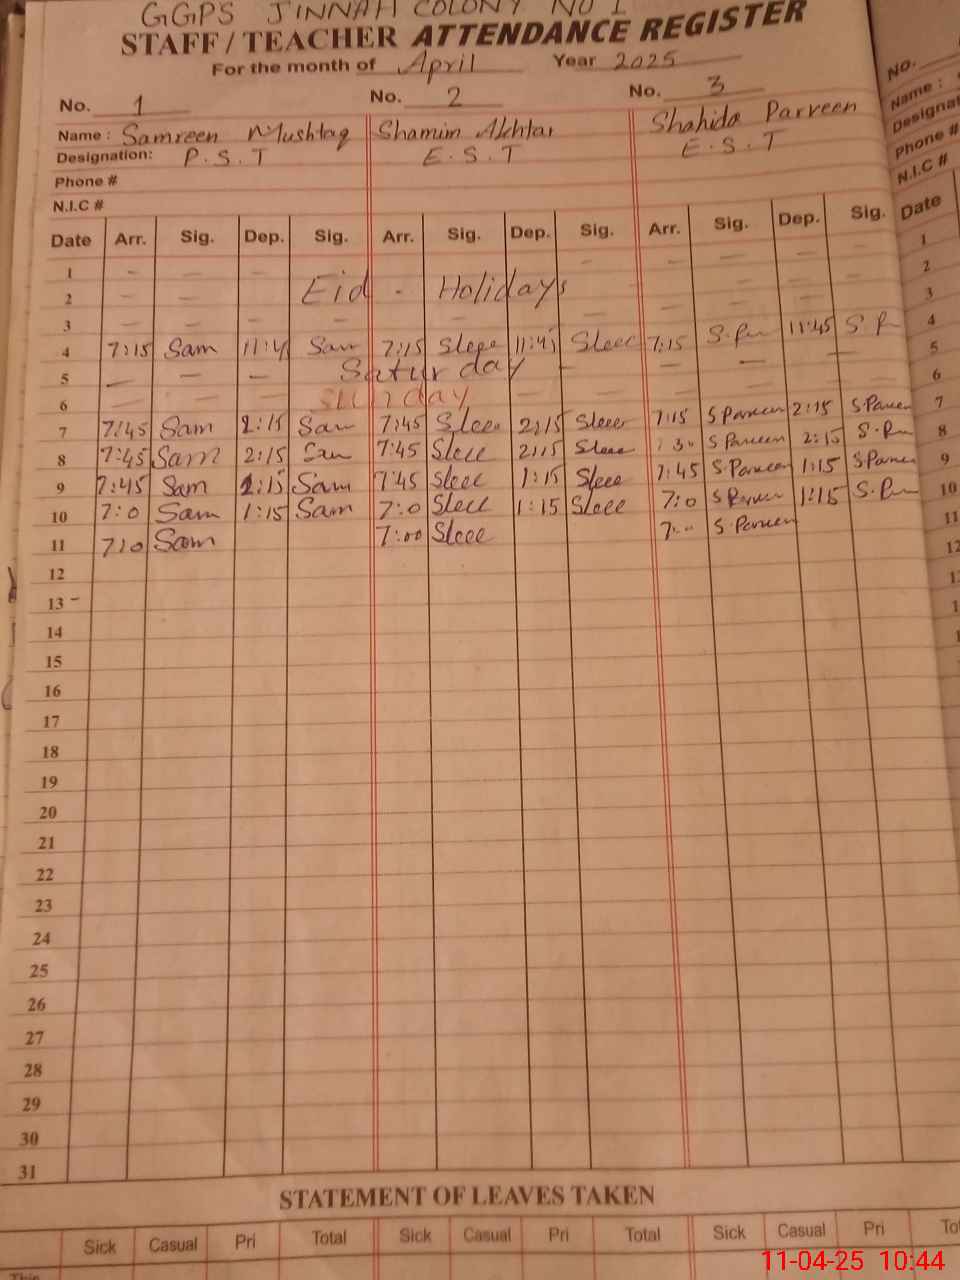 GGPS JINNAH COLONY NO 1
STAFF / TEACHER ATTENDANCE REGISTER
For the month of April Year 2025
No. 1 No. 2 No. 3
Name : Samreen Mushtaq Shamim Akhtar Shahida Parveen
Designation: P.S.T E.S.T E.S.T
Phone #
N.I.C #
Date Arr. Sig. Dep. Sig. Arr. Sig. Dep. Sig. Arr. Sig. Dep. Sig.
1 - - - - - - -
2 - - - Eid - Holidays - - -
3 - - - - - - - -
4 7:15 Sam Sam 7:15 11:45 7:15 11:45 S.P
5 - - - Saturday - - -
6 - - - Sunday - - -
7 7:45 Sam 2:15 Sam 7:45 2:15 7:15 S Parveen 2:15 S.Parveen
8 7:45 Sam 2:15 Sam 7:45 2:15 S Parveen 2:15
9 7:45 Sam 1:15 Sam 7:45 1:15 7:45 S.Parveen 1:15 S.Parveen
10 7:0 Sam 1:15 Sam 7:0 1:15 7:0 S Parveen 1:15
11 7:0 Sam 7:00 S.Parveen
12
13 -
14
15
16
17
18
19
20
21
22
23
24
25
26
27
28
29
30
31
STATEMENT OF LEAVES TAKEN
Sick Casual Pri Total Sick Casual Pri Total Sick Casual Pri
This
No.
Name :
Phone #
N.I.C #
Date
1
2
3
4
5
6
7
8
9
10
11
12
11-04-25 10:44